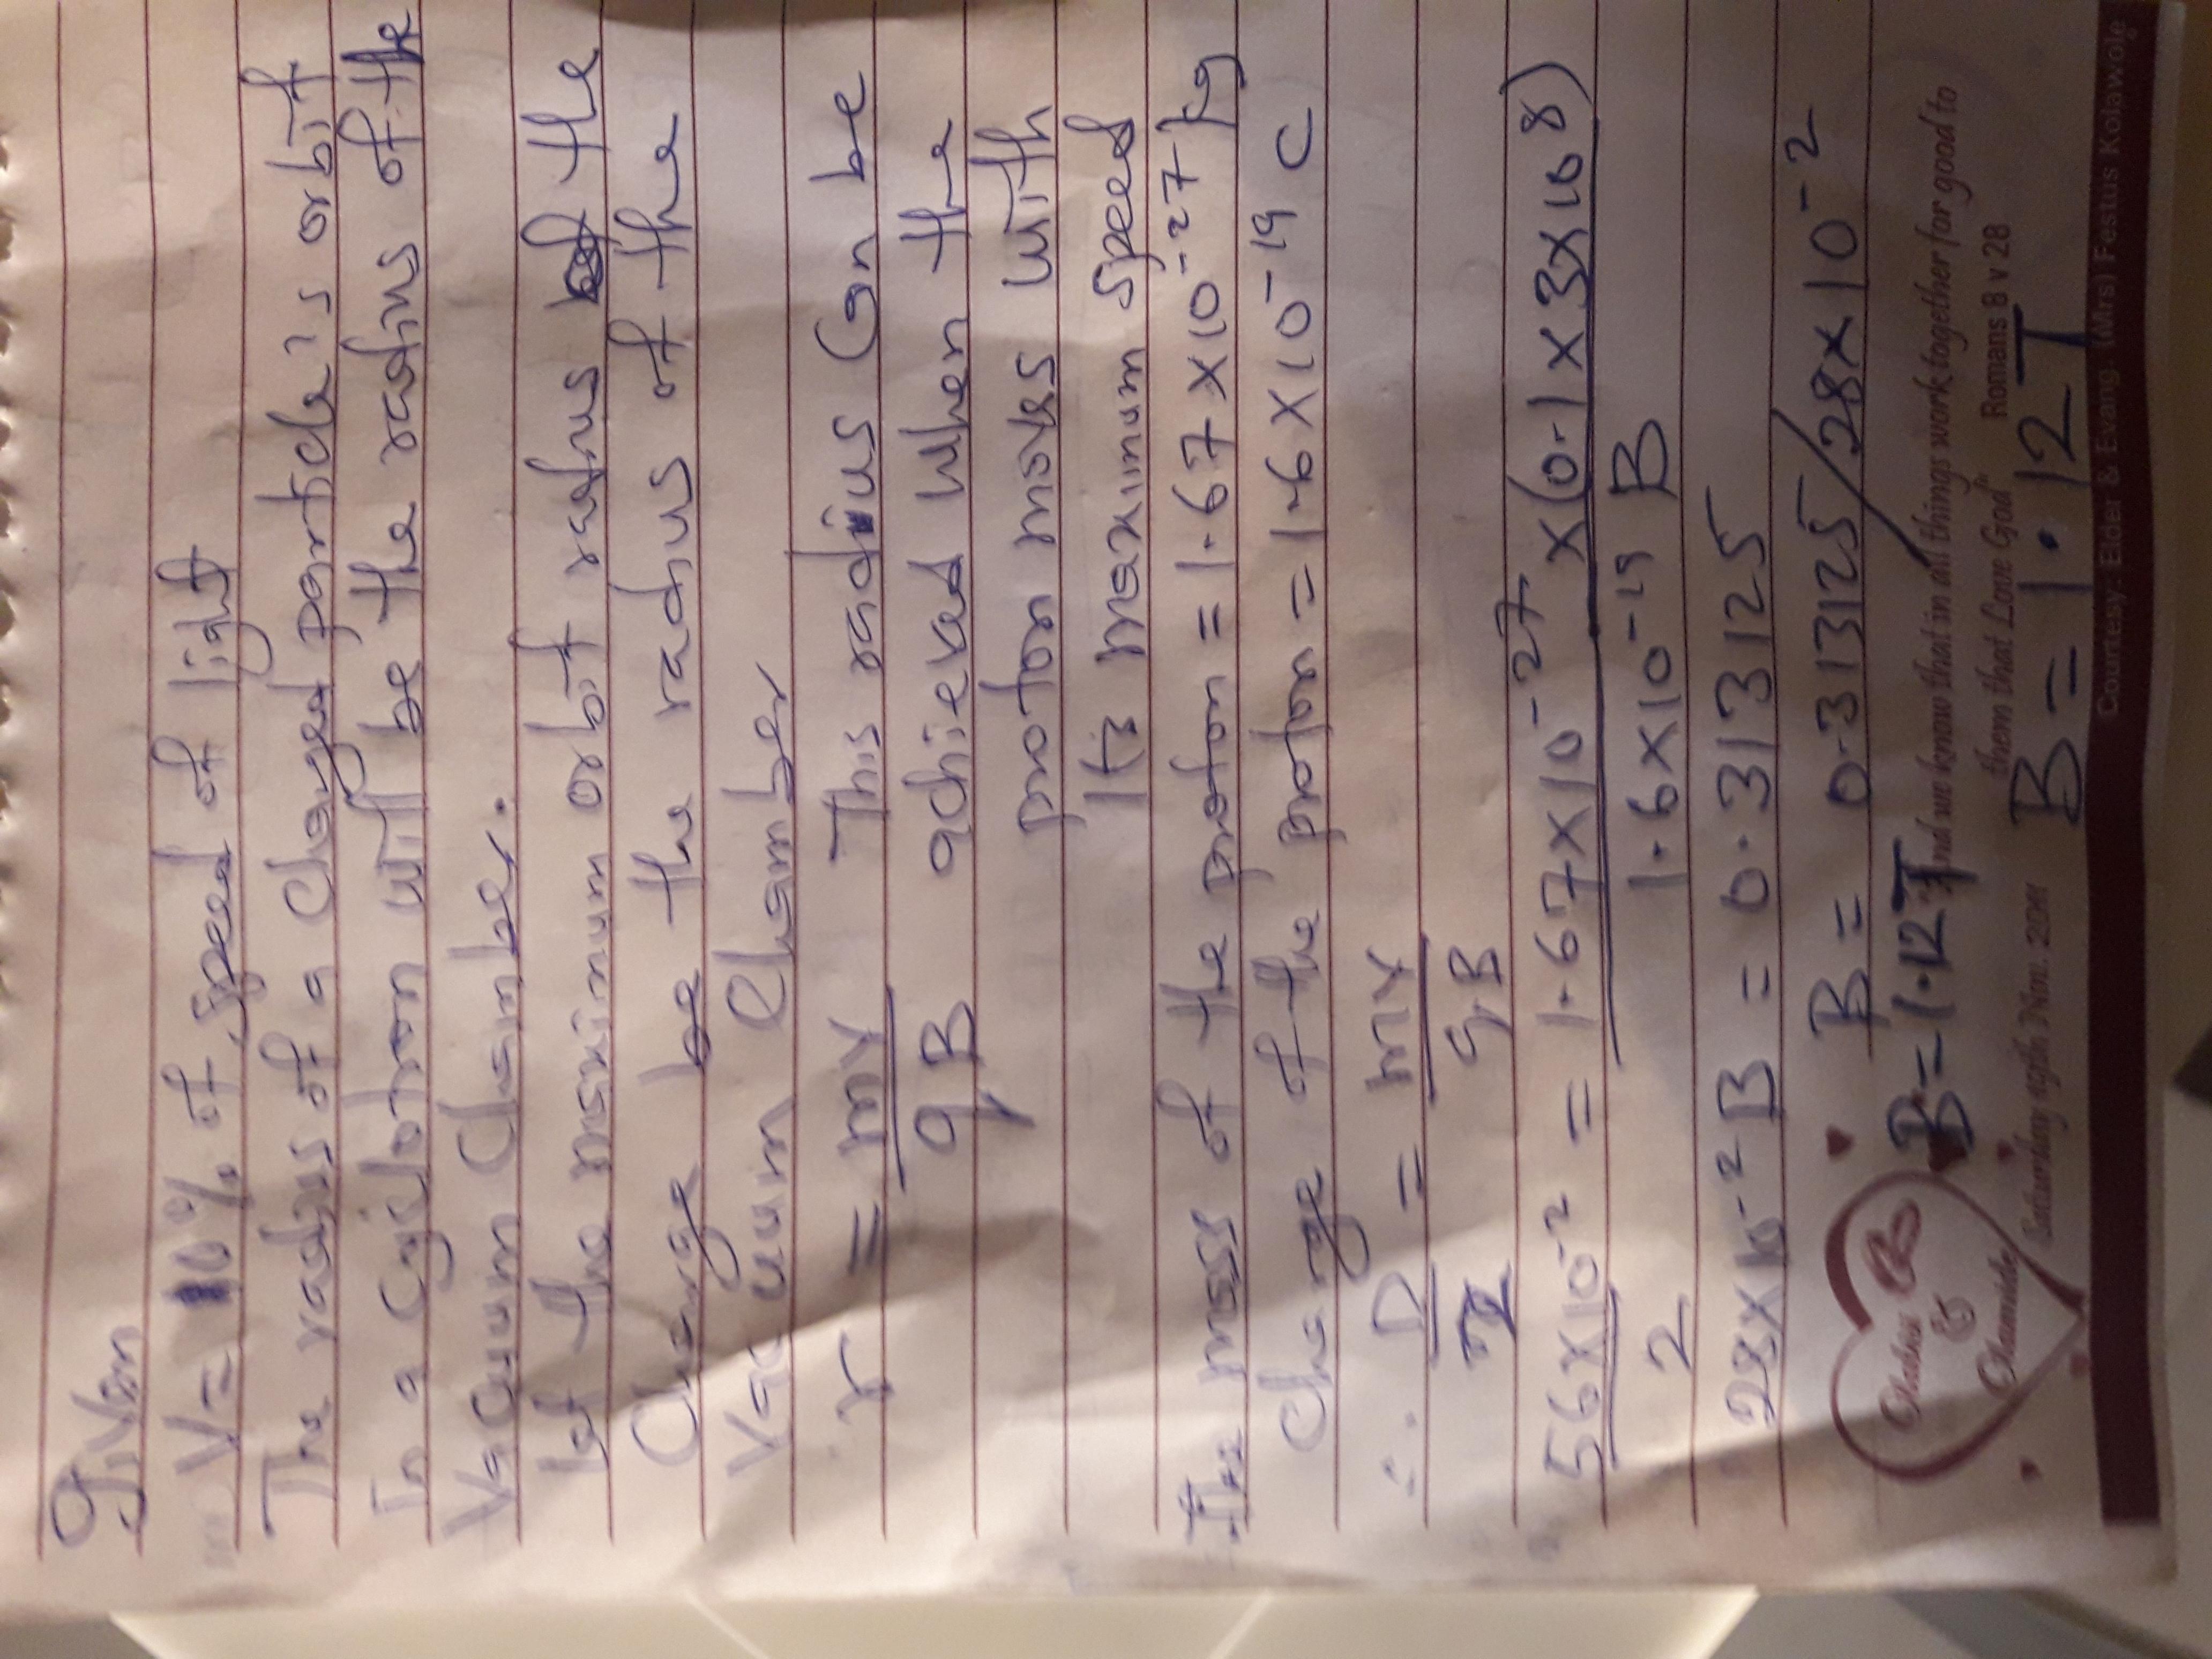 Given
V = 10% of speed of light
The radius of a charged particle's orbit
In a cyclotron will be the radius of the
Vacuum Chamber.
let the maximum orbit radius of the
Charge be the radius of the
Vacuum Chamber
r = mv This radius Can be
qB achieved when the
proton moves with
Its maximum speed
The mass of the proton = 1.67 x 10^-27 kg
Charge of the proton = 1.6 x 10^-19 C
∴ D = mv
2 qB
56x10^-2 = 1.67x10^-27 x(0.1 x 3x10^8)
2 1.6x10^-19 B
28x10^-2 B = 0.313125
B = 0.313125/28x10^-2
B = 1.12T
And we know that in all things work together for good to
them that Love God" Romans 8 v 28
Olabisi & Olamide
Saturday Nov. 2011
B = 1.12T
Courtesy: Elder & Evang. (Mrs) Festus Kolawole